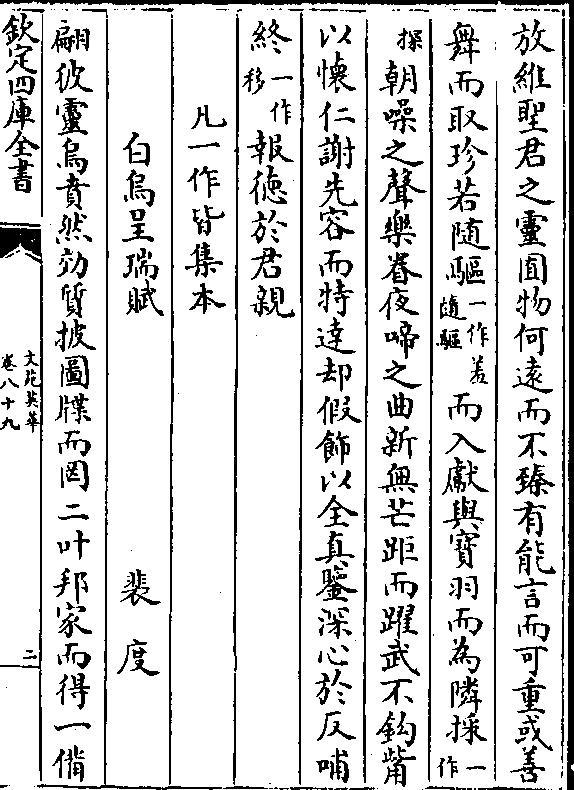 放維聖君之靈囿物何遠而不臻有能言而可重或善
舞而取珍若隨驅一作羞隨驅而入獻與寶羽而為隣採一作
探朝噪之聲樂眷夜啼之曲新無芒距而躍武不鈎觜
以懐仁謝先容而特達却假飾以全真鑒深心於反哺
終一作移報徳於君親
凡一作皆集本
白烏呈瑞賦 裴度
翩彼靈烏賁然効質披圖牒而罔二叶邦家而得一備
欽定四庫全書
文苑英華
卷八十九
二